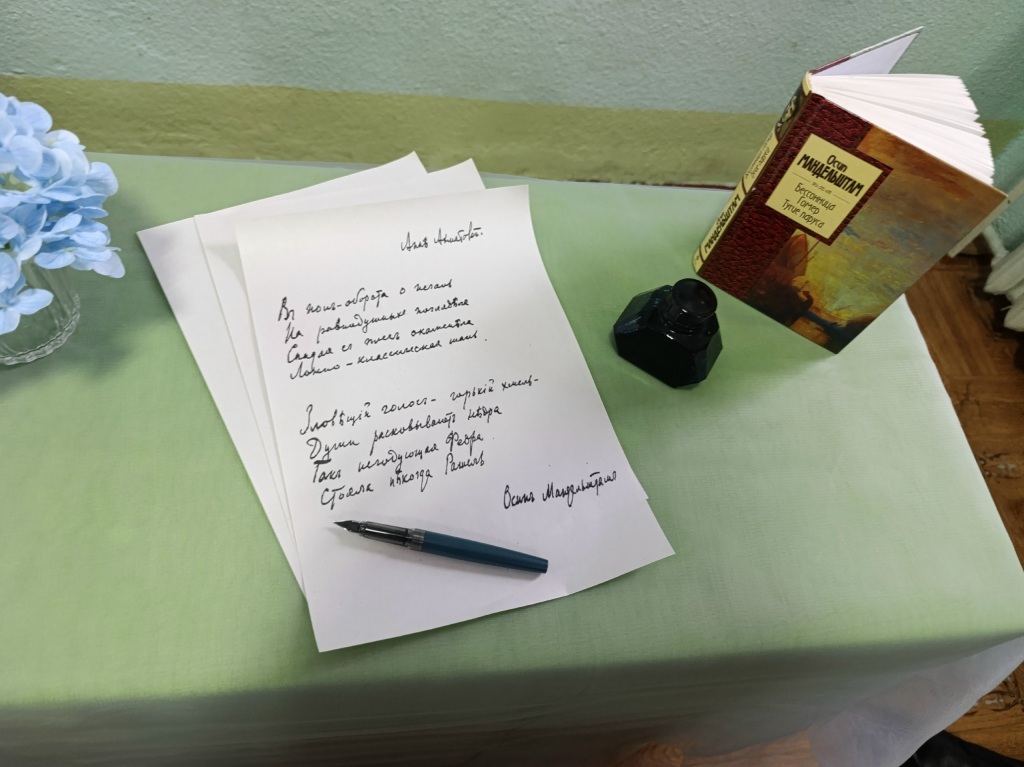 Аннѣ Ахматовой.
Въ полъ-оборота о печаль
На равнодушныхъ поглядѣла
Спадая съ плечъ окаменѣла
Ложно-классическая шаль.
Зловѣщій голосъ - горькій хмель -
Души расковываетъ нѣдра
Такъ негодующая Федра
Стояла нѣкогда Рашель
Осипъ Мандельштамъ
Осип
МАНДЕЛЬШТАМ
Бессонница
Гомер
Тугие паруса
МАНДЕЛЬШТАМ